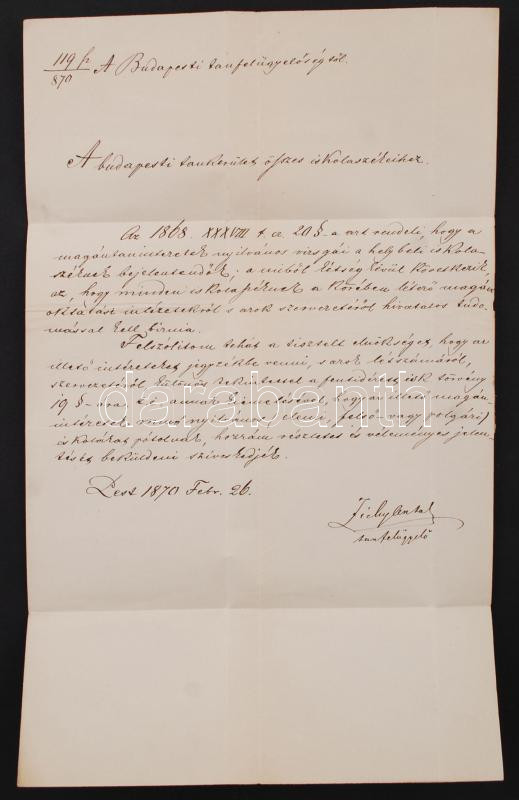 119 sz
870
A Budapesti tanfelügyelőségtől.
A budapesti tankerület összes iskolaszékeihez.
Az 1868. XXXVIII t. cz. 20 §-a azt rendeli, hogy a
magántanintézetek nyilvános vizsgái a helybeli iskola-
széknek bejelentendők; a miből kétség kívül következik
az, hogy minden iskolaszéknek a körében létező magán
oktatási intézetekről s azok szervezetéről hivatalos tudo-
mással kell birnia.
Felszólitom tehát a tisztelt elnökséget, hogy az
illető intézeteket jegyzékbe venni, s azok létszámáról,
szervezetéről, különös tekintettel a fentidézett isk törvény
19 §-ára, és annak kimutatásával, hogy az illető magán-
intézetek minő nyilvános (elemi, felső vagy polgári)
iskolákat pótolnak, hozzám részletes és véleményes jelen-
tését beküldeni sziveskedjék.
Pest 1870 Febr. 26.
Zichy Antal
tanfelügyelő
darabanth